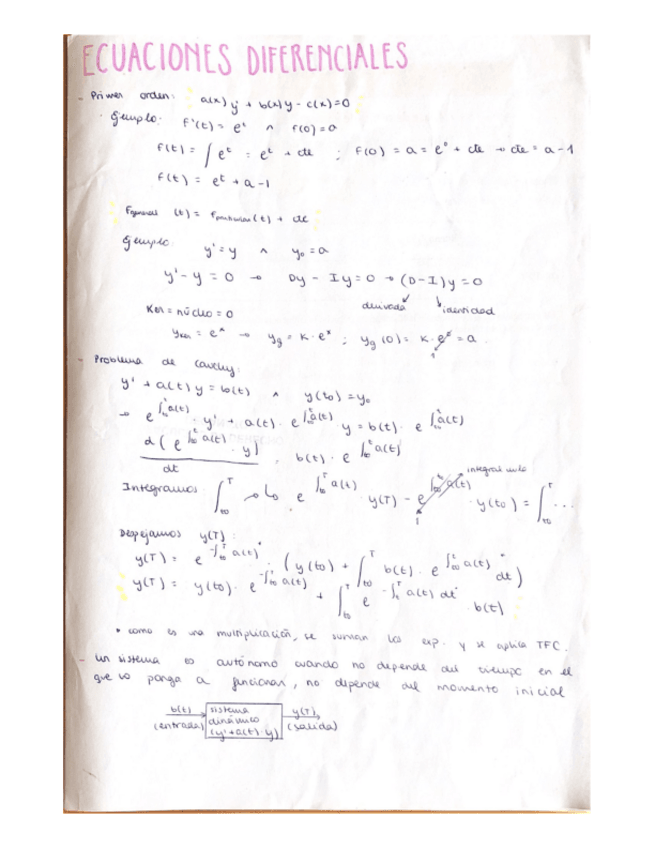 ECUACIONES DIFERENCIALES
- Primer orden: a(x) y' + b(x) y - c(x) = 0
· Ejemplo: f'(t) = e^t ∧ f(0) = a
f(t) = ∫ e^t = e^t + cte ; f(0) = a = e^0 + cte → cte = a - 1
f(t) = e^t + a - 1
f general (t) = f particular (t) + cte
Ejemplo: y' = y ∧ y_0 = a
y' - y = 0 → Dy - Iy = 0 → (D - I) y = 0
derivada identidad
Ker = núcleo = 0
y_ker = e^x → y_g = K · e^x ; y_g (0) = K · e^0 = a
1
- Problema de Cauchy:
y' + a(t) y = b(t) ∧ y(t_0) = y_0
→ e^{∫_{t_0}^{t} a(t)} · y' + a(t) · e^{∫_{t_0}^{t} a(t)} y = b(t) · e^{∫_{t_0}^{t} a(t)}
d( e^{∫_{t_0}^{t} a(t)} · y) / dt = b(t) · e^{∫_{t_0}^{t} a(t)}
integral nula
Integramos: ∫_{t_0}^{T} → e^{∫_{t_0}^{T} a(t)} · y(T) - e^{∫_{t_0}^{t_0} a(t)} · y(t_0) = ∫_{t_0}^{T} ...
1
Despejamos y(T):
y(T) = e^{-∫_{t_0}^{T} a(t)} * · ( y(t_0) + ∫_{t_0}^{T} b(t) · e^{∫_{t_0}^{t} a(t)} * dt )
y(T) = y(t_0) · e^{-∫_{t_0}^{T} a(t)} + ∫_{t_0}^{T} e^{-∫_{t}^{T} a(t) dt} * · b(t)
* como es una multiplicación, se suman los exp. y se aplica TFC.
- un sistema es autónomo cuando no depende del tiempo en el
que lo ponga a funcionar, no depende del momento inicial
b(t) (entrada) → sistema dinámico (y' + a(t) · y) → y(T) (salida)